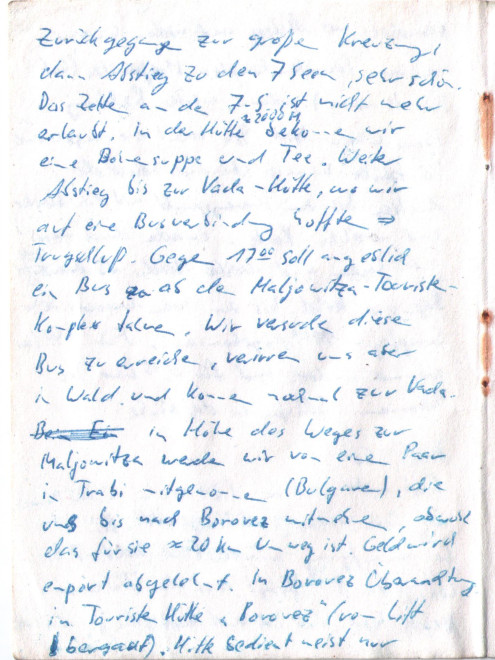 Zurückgegangen zur großen Kreuzung,
dann Abstieg zu den 7 Seen, sehr schön.
Das Zelten an den 7-S. ist nicht mehr
≈2000 M
erlaubt. In der Hütte bekommen wir
eine Bohnensuppe und Tee. Weiter
Abstieg bis zur Vada-Hütte, wo wir
auf eine Busverbindung hofften ⇒
Trugschluß. Gegen 17⁰⁰ soll angeblich
ein Bus ab dem Maljowitza-Touristen-
Komplex fahren. Wir versuchen diesen
Bus zu erreichen, verirren uns aber
im Wald und kommen nochmal zur Vada.
in Höhe des Weges zur
Maljowitza werden wir von einem Paar
im Trabi mitgenommen (Bulgaren), die
uns bis nach Borovez mitnehmen, obwohl
das für sie ≈ 20 km Umweg ist. Geld wird
empört abgelehnt. In Borovez Übernachtung
in Touristen Hütte „Borovez" (vom Lift
bergauf). Hütte bedient meist nur